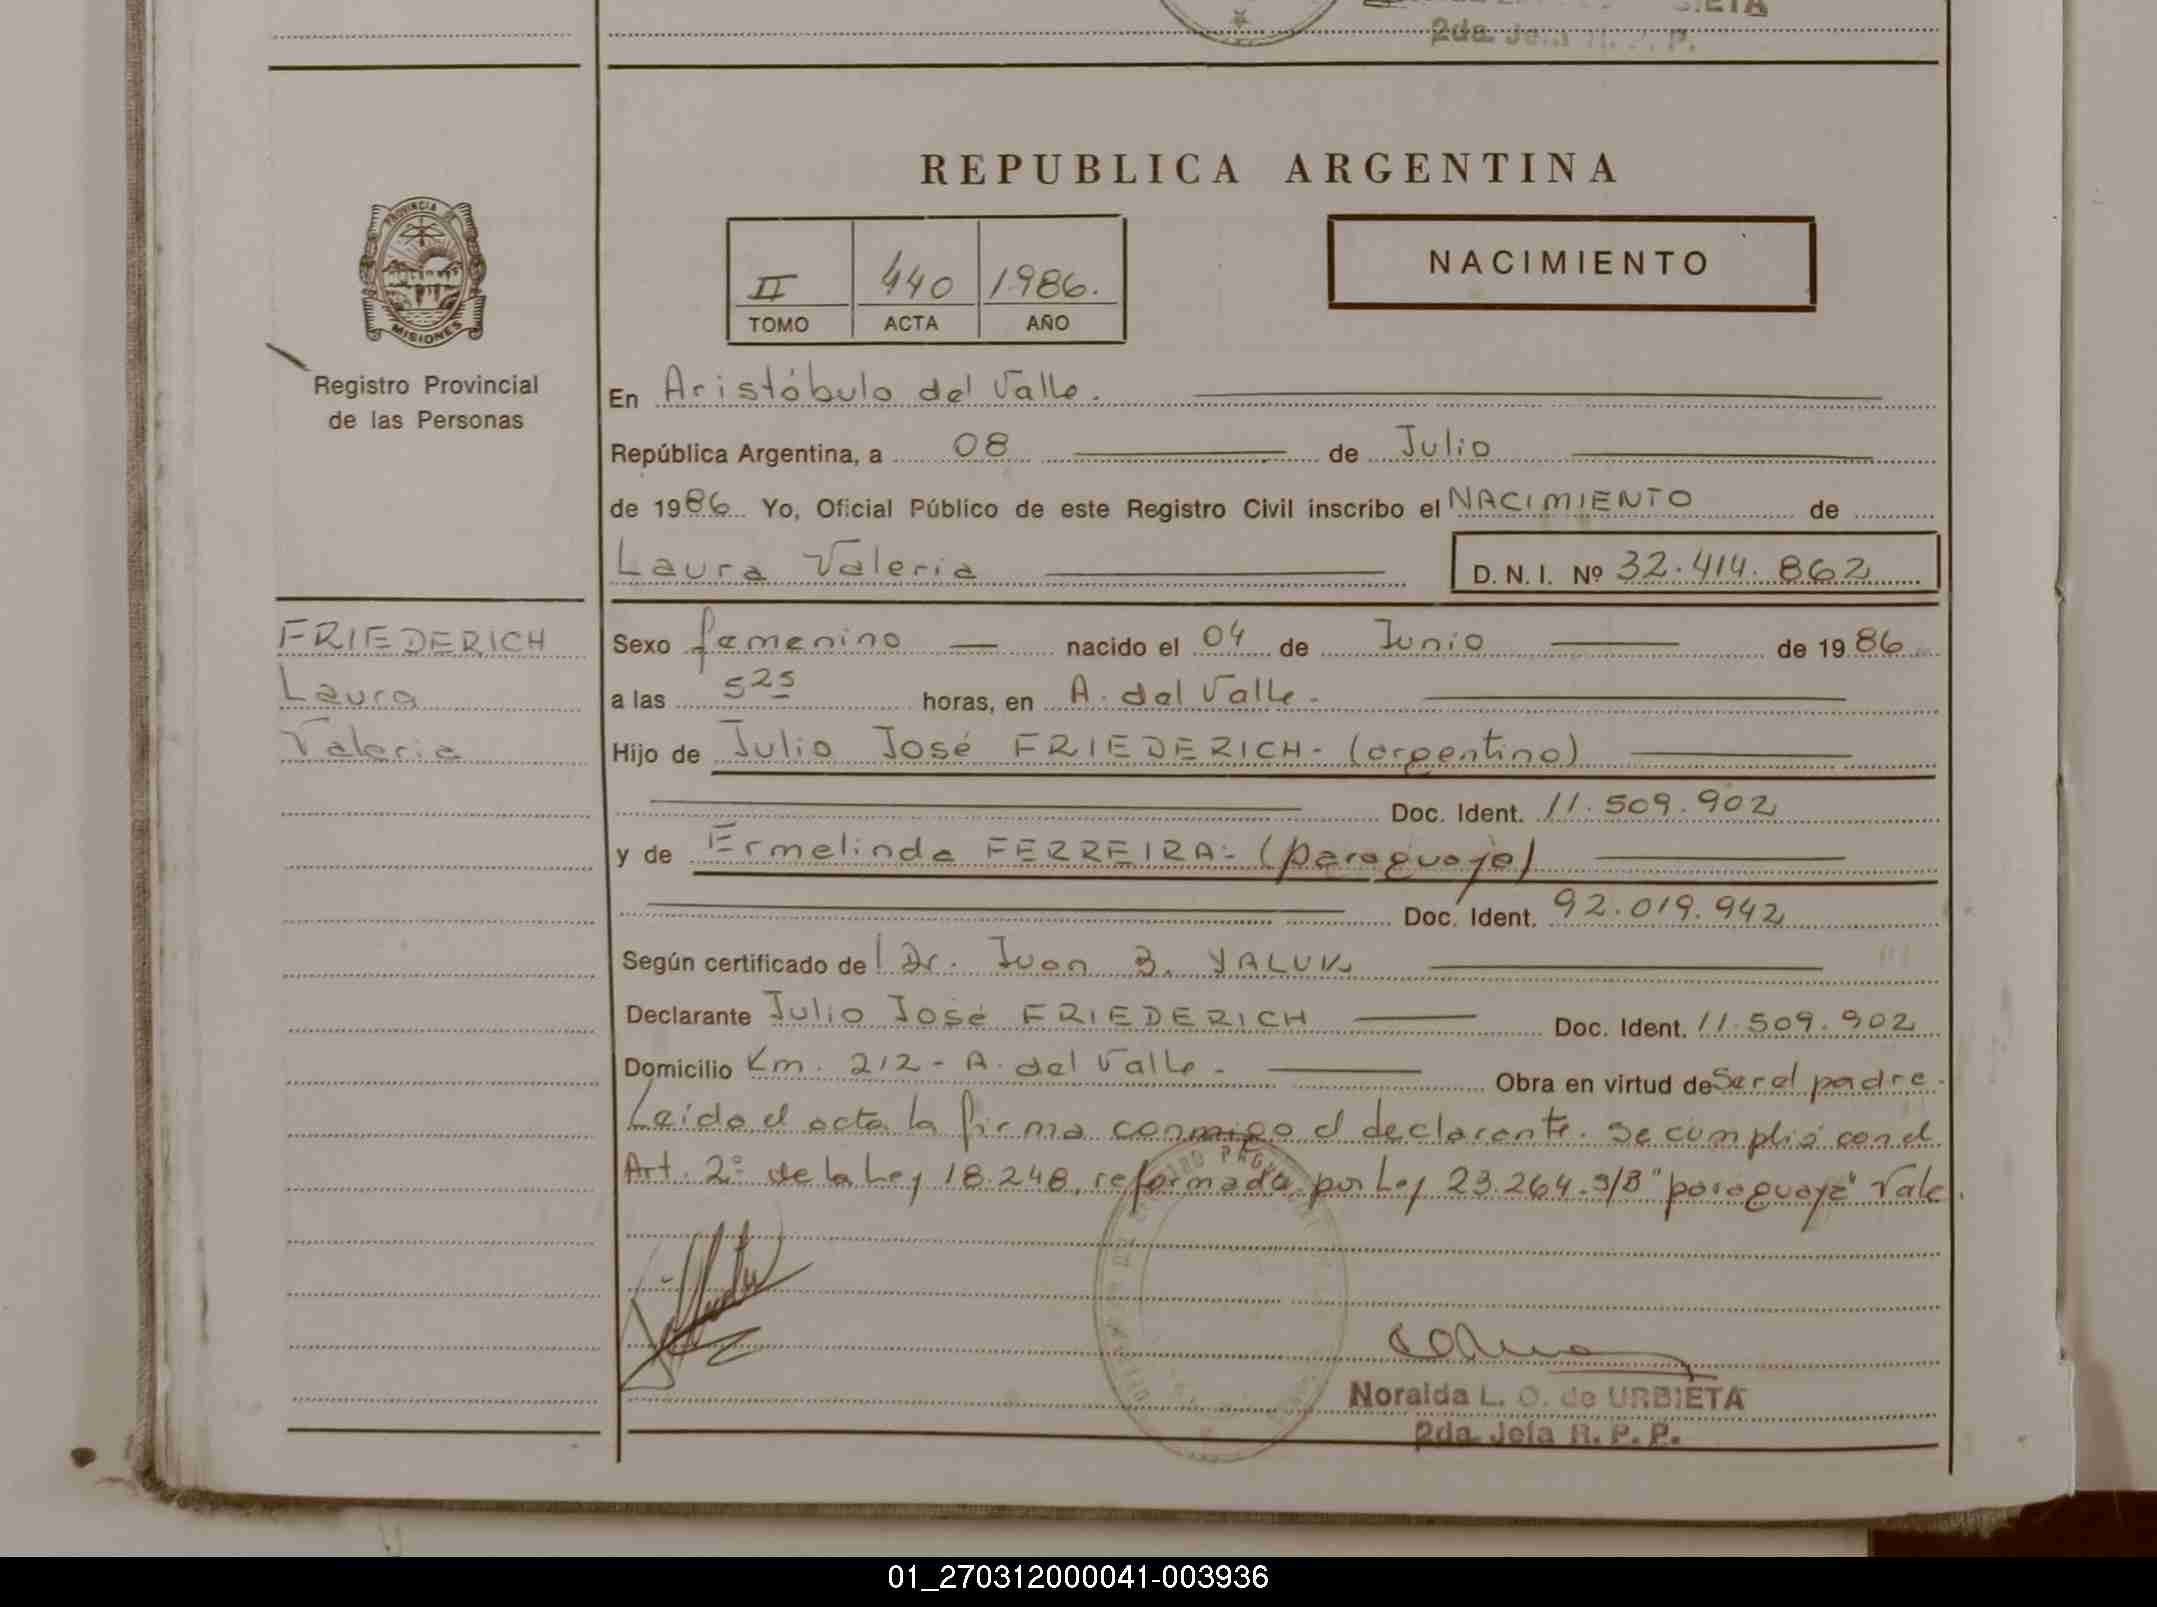 2da. Jefa R. P. P.
REPUBLICA ARGENTINA
PROVINCIA DE
MISIONES
Registro Provincial
de las Personas
II 440 1986.
TOMO ACTA AÑO
NACIMIENTO
En Aristóbulo del Valle.
República Argentina, a 08 de Julio
de 1986 Yo, Oficial Público de este Registro Civil inscribo el NACIMIENTO de
Laura Valeria D. N. I. Nº 32.414.862
FRIEDERICH
Laura
Valeria
Sexo femenino nacido el 04 de Junio de 1986
a las 5 25 horas, en A. del Valle.
Hijo de Julio José FRIEDERICH- (argentino)
Doc. Ident. 11.509.902
y de Ermelinda FERREIRA- (paraguaya)
Doc. Ident. 92.019.942
Según certificado de Dr. Juan B. YALUK
Declarante Julio José FRIEDERICH Doc. Ident. 11.509.902
Domicilio Km. 212 - A. del Valle. Obra en virtud de Ser el padre.
Leída el acta la firma conmigo el declarante. Se cumplió con el
Art. 2º de la Ley 18.248, reformada por Ley 23.264. S/B "paraguaya" Vale.
Noralda L. O. de URBIETA
2da. Jefa R. P. P.
01_270312000041-003936